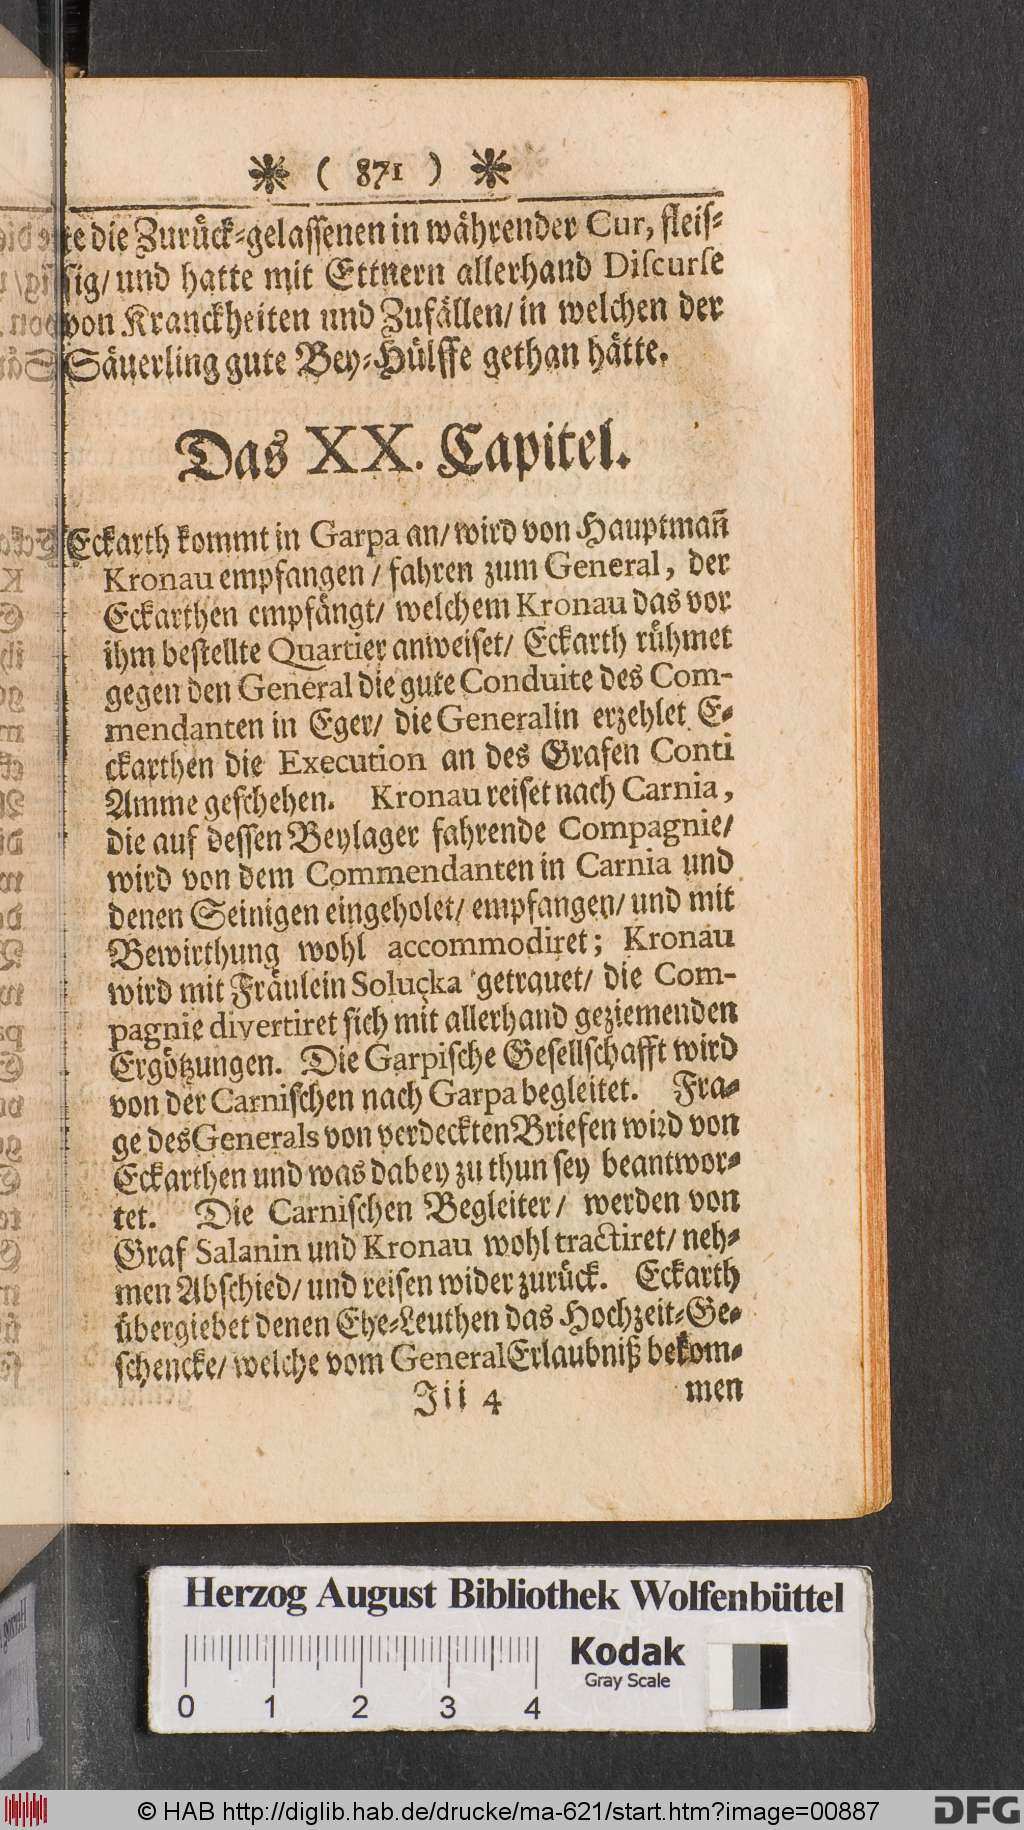 * ( 871 ) *
te die Zurück-gelassenen in währender Cur, fleis-
sig/ und hatte mit Ettnern allerhand Discurse
von Kranckheiten und Zufällen/ in welchen der
Säuerling gute Bey-Hülffe gethan hätte.
Das XX. Capitel.
Eckarth kommt in Garpa an/ wird von Hauptmañ
Kronau empfangen / fahren zum General, der
Eckarthen empfängt/ welchem Kronau das vor
ihm bestellte Quartier anweiset/ Eckarth rühmet
gegen den General die gute Conduite des Com-
mendanten in Eger/ die Generalin erzehlet E-
ckarthen die Execution an des Grafen Conti
Amme geschehen. Kronau reiset nach Carnia,
die auf dessen Beylager fahrende Compagnie/
wird von dem Commendanten in Carnia und
denen Seinigen eingeholet/ empfangen/ und mit
Bewirthung wohl accommodiret; Kronau
wird mit Fräulein Solucka getrauet/ die Com-
pagnie divertiret sich mit allerhand geziemenden
Ergötzungen. Die Garpische Gesellschafft wird
von der Carnischen nach Garpa begleitet. Fra-
ge des Generals von verdeckten Briefen wird von
Eckarthen und was dabey zu thun sey beantwor-
tet. Die Carnischen Begleiter/ werden von
Graf Salanin und Kronau wohl tractiret/ neh-
men Abschied/ und reisen wider zurück. Eckarth
übergiebet denen Ehe-Leuthen das Hochzeit-Ge-
schencke/ welche vom General Erlaubniß bekom-
Jii 4 men
Herzog August Bibliothek Wolfenbüttel
0 1 2 3 4
Kodak
Gray Scale
© HAB http://diglib.hab.de/drucke/ma-621/start.htm?image=00887
DFG